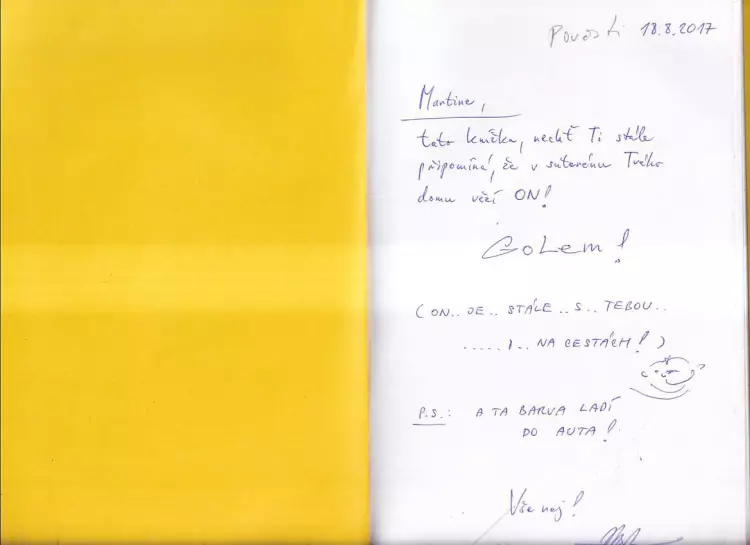 Pověsti 18.8.2017
Martine,
tato knížka, nechť Ti stále
připomíná, že v suterénu Tvého
domu vězí ON!
GoLem!
(ON.. JE.. STÁLE.. S.. TEBOU..
..... I.. NA CESTÁCH!)
P.S.: A TA BARVA LADÍ
DO AUTA!
Vše nej!